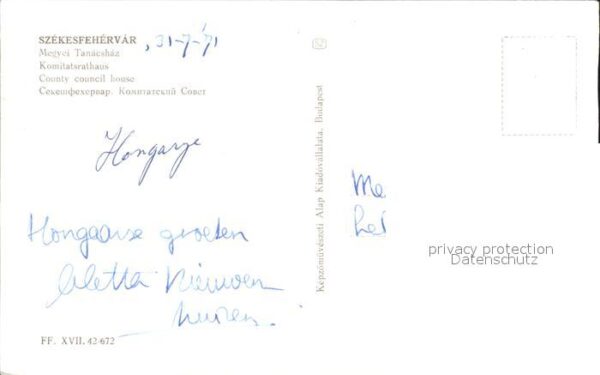 SZÉKESFEHÉRVÁR
, 31-7-'71
Megyei Tanácsház
Komitatsrathaus
County council house
Секешфехервар. Комитатский Совет
Hongarye
Hongaarse groeten
Aletta
FF. XVII. 42-672
Képzőművészeti Alap Kiadóvállalata, Budapest
Me
privacy protection
Datenschutz